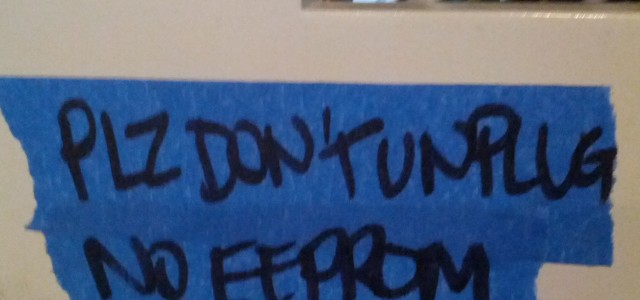 PLZ DON'T UNPLUG
NO EEPROM